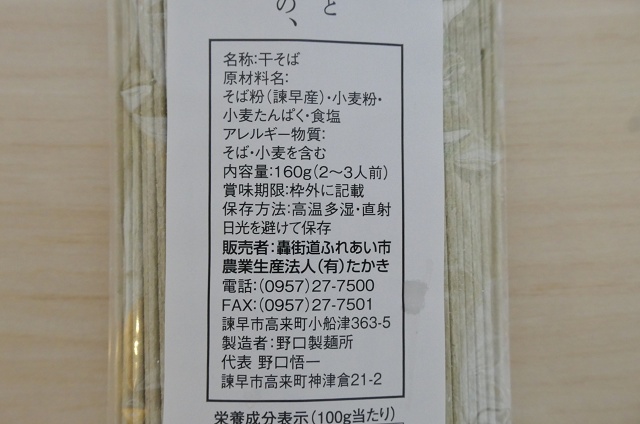 と
の、
名称:干そば
原材料名:
そば粉(諫早産)・小麦粉・
小麦たんぱく・食塩
アレルギー物質:
そば・小麦を含む
内容量:160g(2〜3人前)
賞味期限:枠外に記載
保存方法:高温多湿・直射
日光を避けて保存
販売者:轟街道ふれあい市
農業生産法人(有)たかき
電話:(0957)27-7500
FAX:(0957)27-7501
諫早市高来町小船津363-5
製造者:野口製麺所
代表 野口悟一
諫早市高来町神津倉21-2
栄養成分表示(100g当たり)